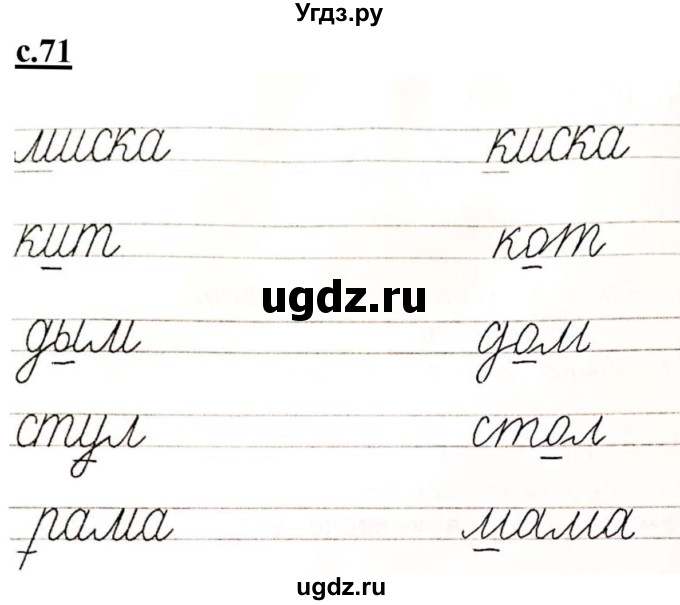 Угдз.ру
с.71
миска киска
кит кот
ugdz.ru
дым дом
стул стол
рама мама
ugdz.ru